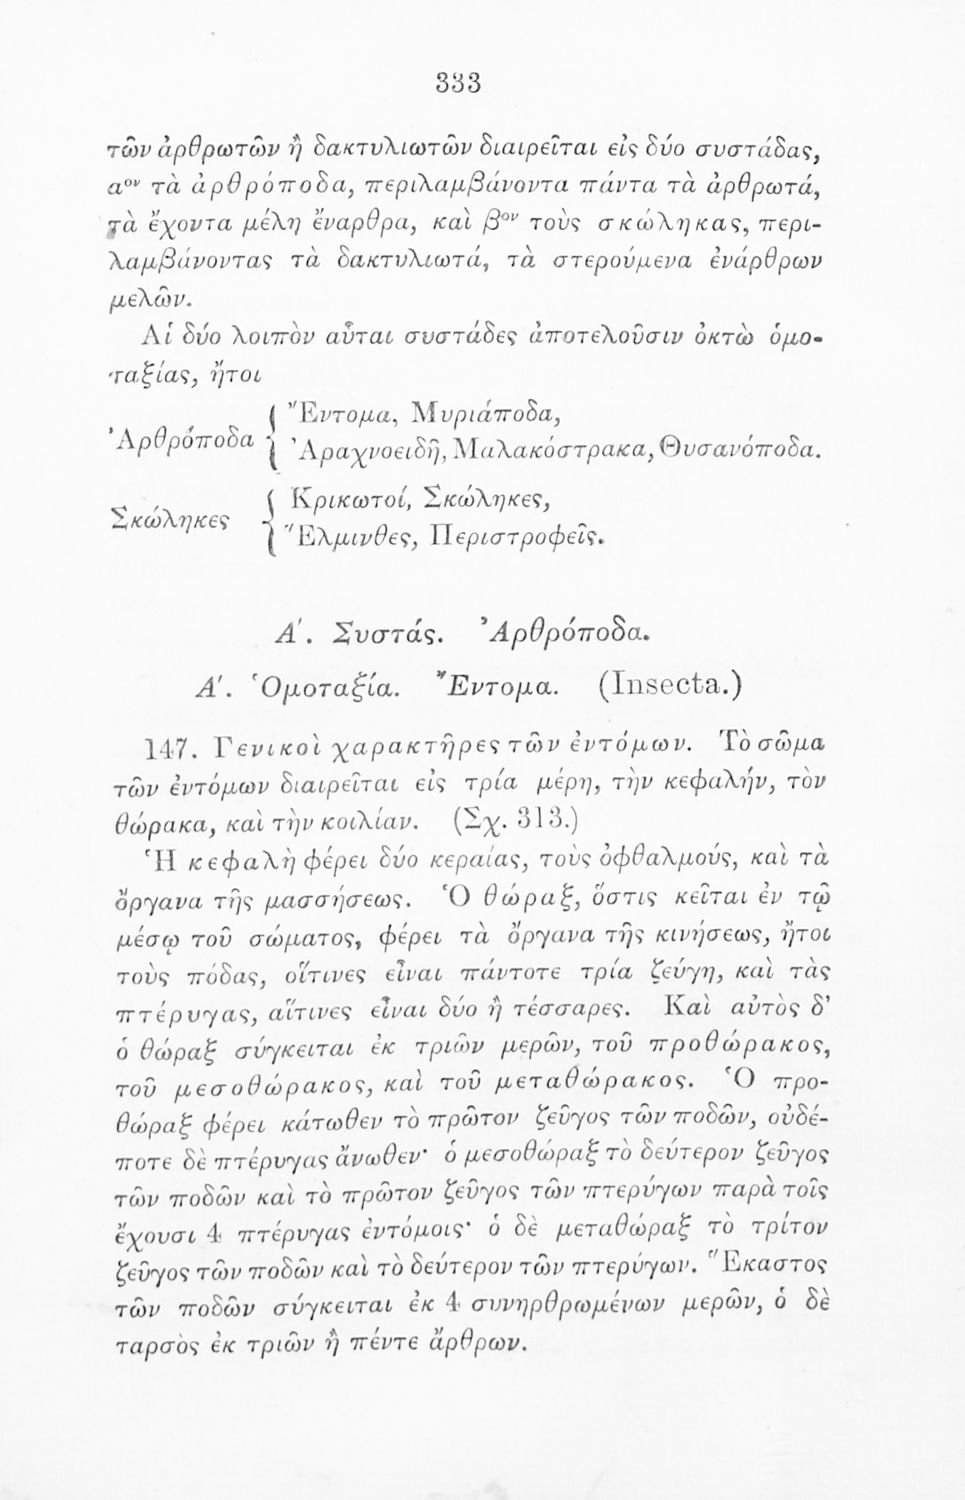 333
τῶν ἀρθρωτῶν ἢ δακτυλιωτῶν διαιρεῖται εἰς δύο συστάδας,
αον τὰ ἀρθρόποδα, περιλαμβάνοντα πάντα τὰ ἀρθρωτά,
τὰ ἔχοντα μέλη ἔναρθρα, καὶ βον τοὺς σκώληκας, περι-
λαμβάνοντας τὰ δακτυλιωτά, τὰ στερούμενα ἐνάρθρων
μελῶν.
Αἱ δύο λοιπὸν αὗται συστάδες ἀποτελοῦσιν ὀκτὼ ὁμο-
ταξίας, ἤτοι
Ἀρθρόποδα { Ἔντομα, Μυριάποδα,
Ἀραχνοειδῆ, Μαλακόστρακα, Θυσανόποδα.
Σκώληκες { Κρικωτοί, Σκώληκες,
Ἕλμινθες, Περιστροφεῖς.
Α΄. Συστάς. Ἀρθρόποδα.
Α΄. Ὁμοταξία. Ἔντομα. (Insecta.)
147. Γενικοὶ χαρακτῆρες τῶν ἐντόμων. Τὸ σῶμα
τῶν ἐντόμων διαιρεῖται εἰς τρία μέρη, τὴν κεφαλήν, τὸν
θώρακα, καὶ τὴν κοιλίαν. (Σχ. 313.)
Ἡ κεφαλὴ φέρει δύο κεραίας, τοὺς ὀφθαλμούς, καὶ τὰ
ὄργανα τῆς μασσήσεως. Ὁ θώραξ, ὅστις κεῖται ἐν τῷ
μέσῳ τοῦ σώματος, φέρει τὰ ὄργανα τῆς κινήσεως, ἤτοι
τοὺς πόδας, οἵτινες εἶναι πάντοτε τρία ζεύγη, καὶ τὰς
πτέρυγας, αἵτινες εἶναι δύο ἢ τέσσαρες. Καὶ αὐτὸς δ'
ὁ θώραξ σύγκειται ἐκ τριῶν μερῶν, τοῦ προθώρακος,
τοῦ μεσοθώρακος, καὶ τοῦ μεταθώρακος. Ὁ προ-
θώραξ φέρει κάτωθεν τὸ πρῶτον ζεῦγος τῶν ποδῶν, οὐδέ-
ποτε δὲ πτέρυγας ἄνωθεν· ὁ μεσοθώραξ τὸ δεύτερον ζεῦγος
τῶν ποδῶν καὶ τὸ πρῶτον ζεῦγος τῶν πτερύγων παρὰ τοῖς
ἔχουσι 4 πτέρυγας ἐντόμοις· ὁ δὲ μεταθώραξ τὸ τρίτον
ζεῦγος τῶν ποδῶν καὶ τὸ δεύτερον τῶν πτερύγων. Ἕκαστος
τῶν ποδῶν σύγκειται ἐκ 4 συνηρθρωμένων μερῶν, ὁ δὲ
ταρσὸς ἐκ τριῶν ἢ πέντε ἄρθρων.